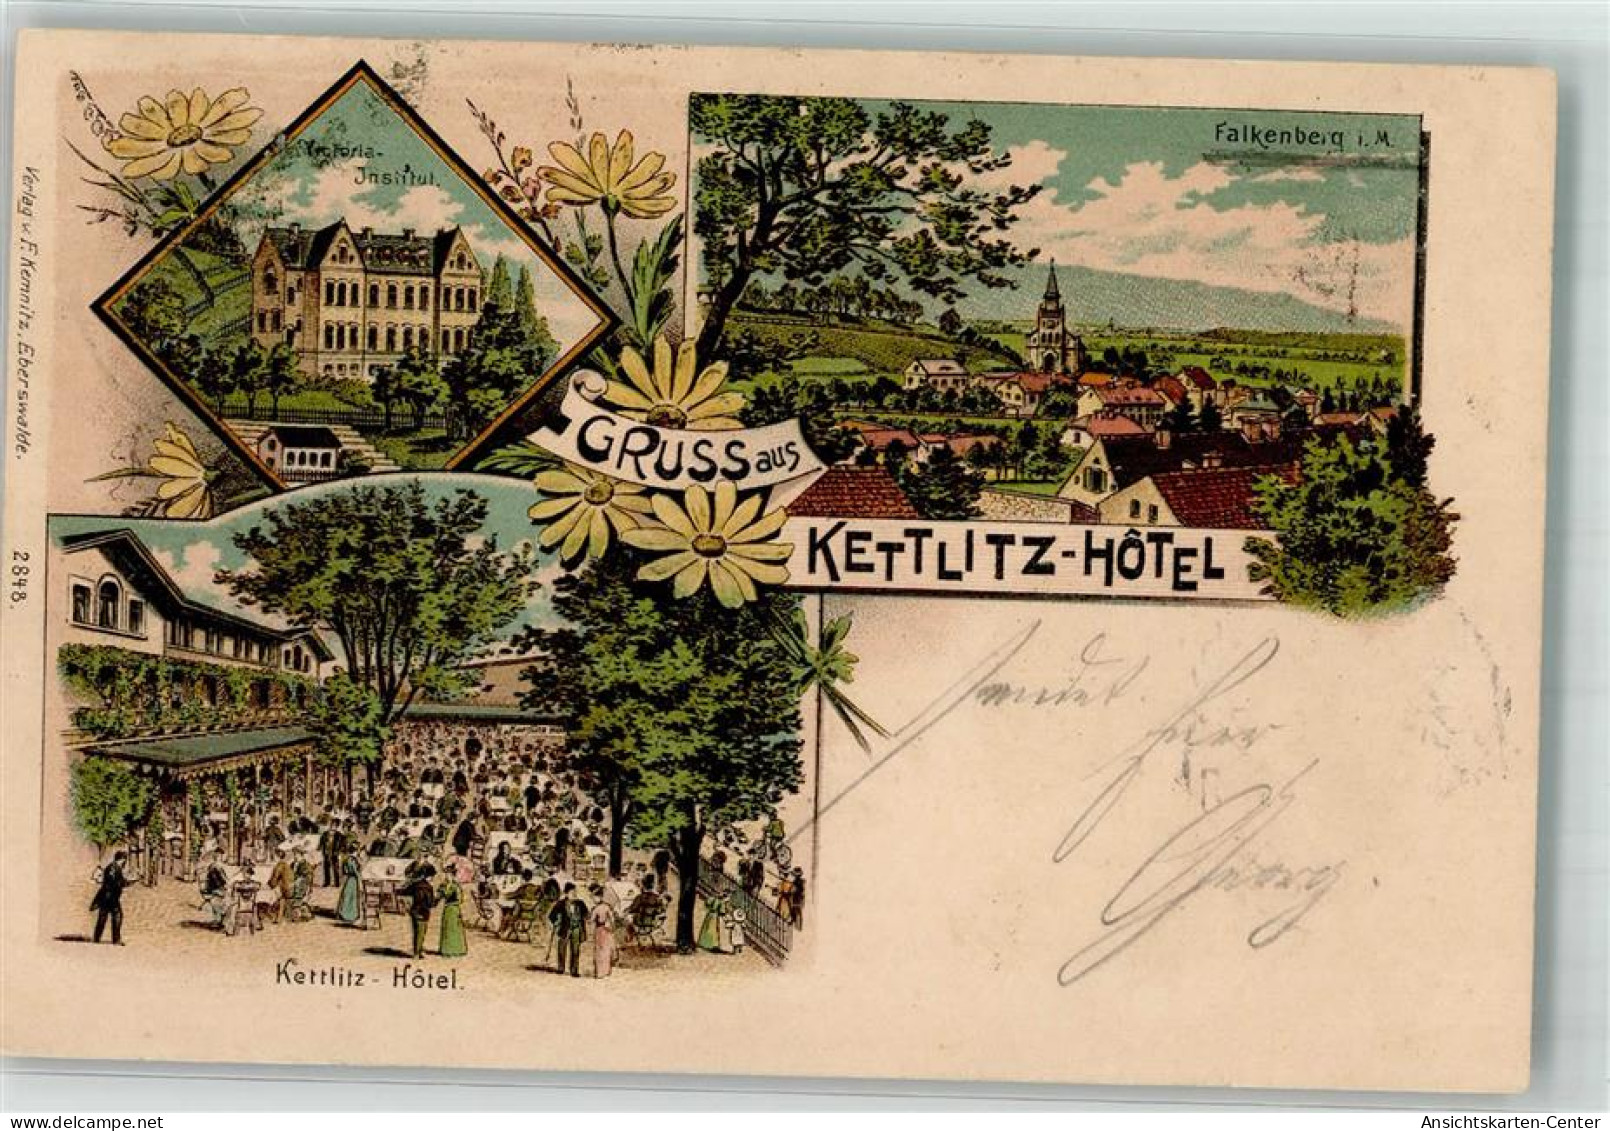 Victoria-
Institut.
Falkenberg i. M.
GRUSS aus
KETTLITZ-HÔTEL
Kettlitz - Hôtel.
Verlag v. F. Kemnitz, Eberswalde.
2848.
sendet
Georg.
Ansichtskarten-Center